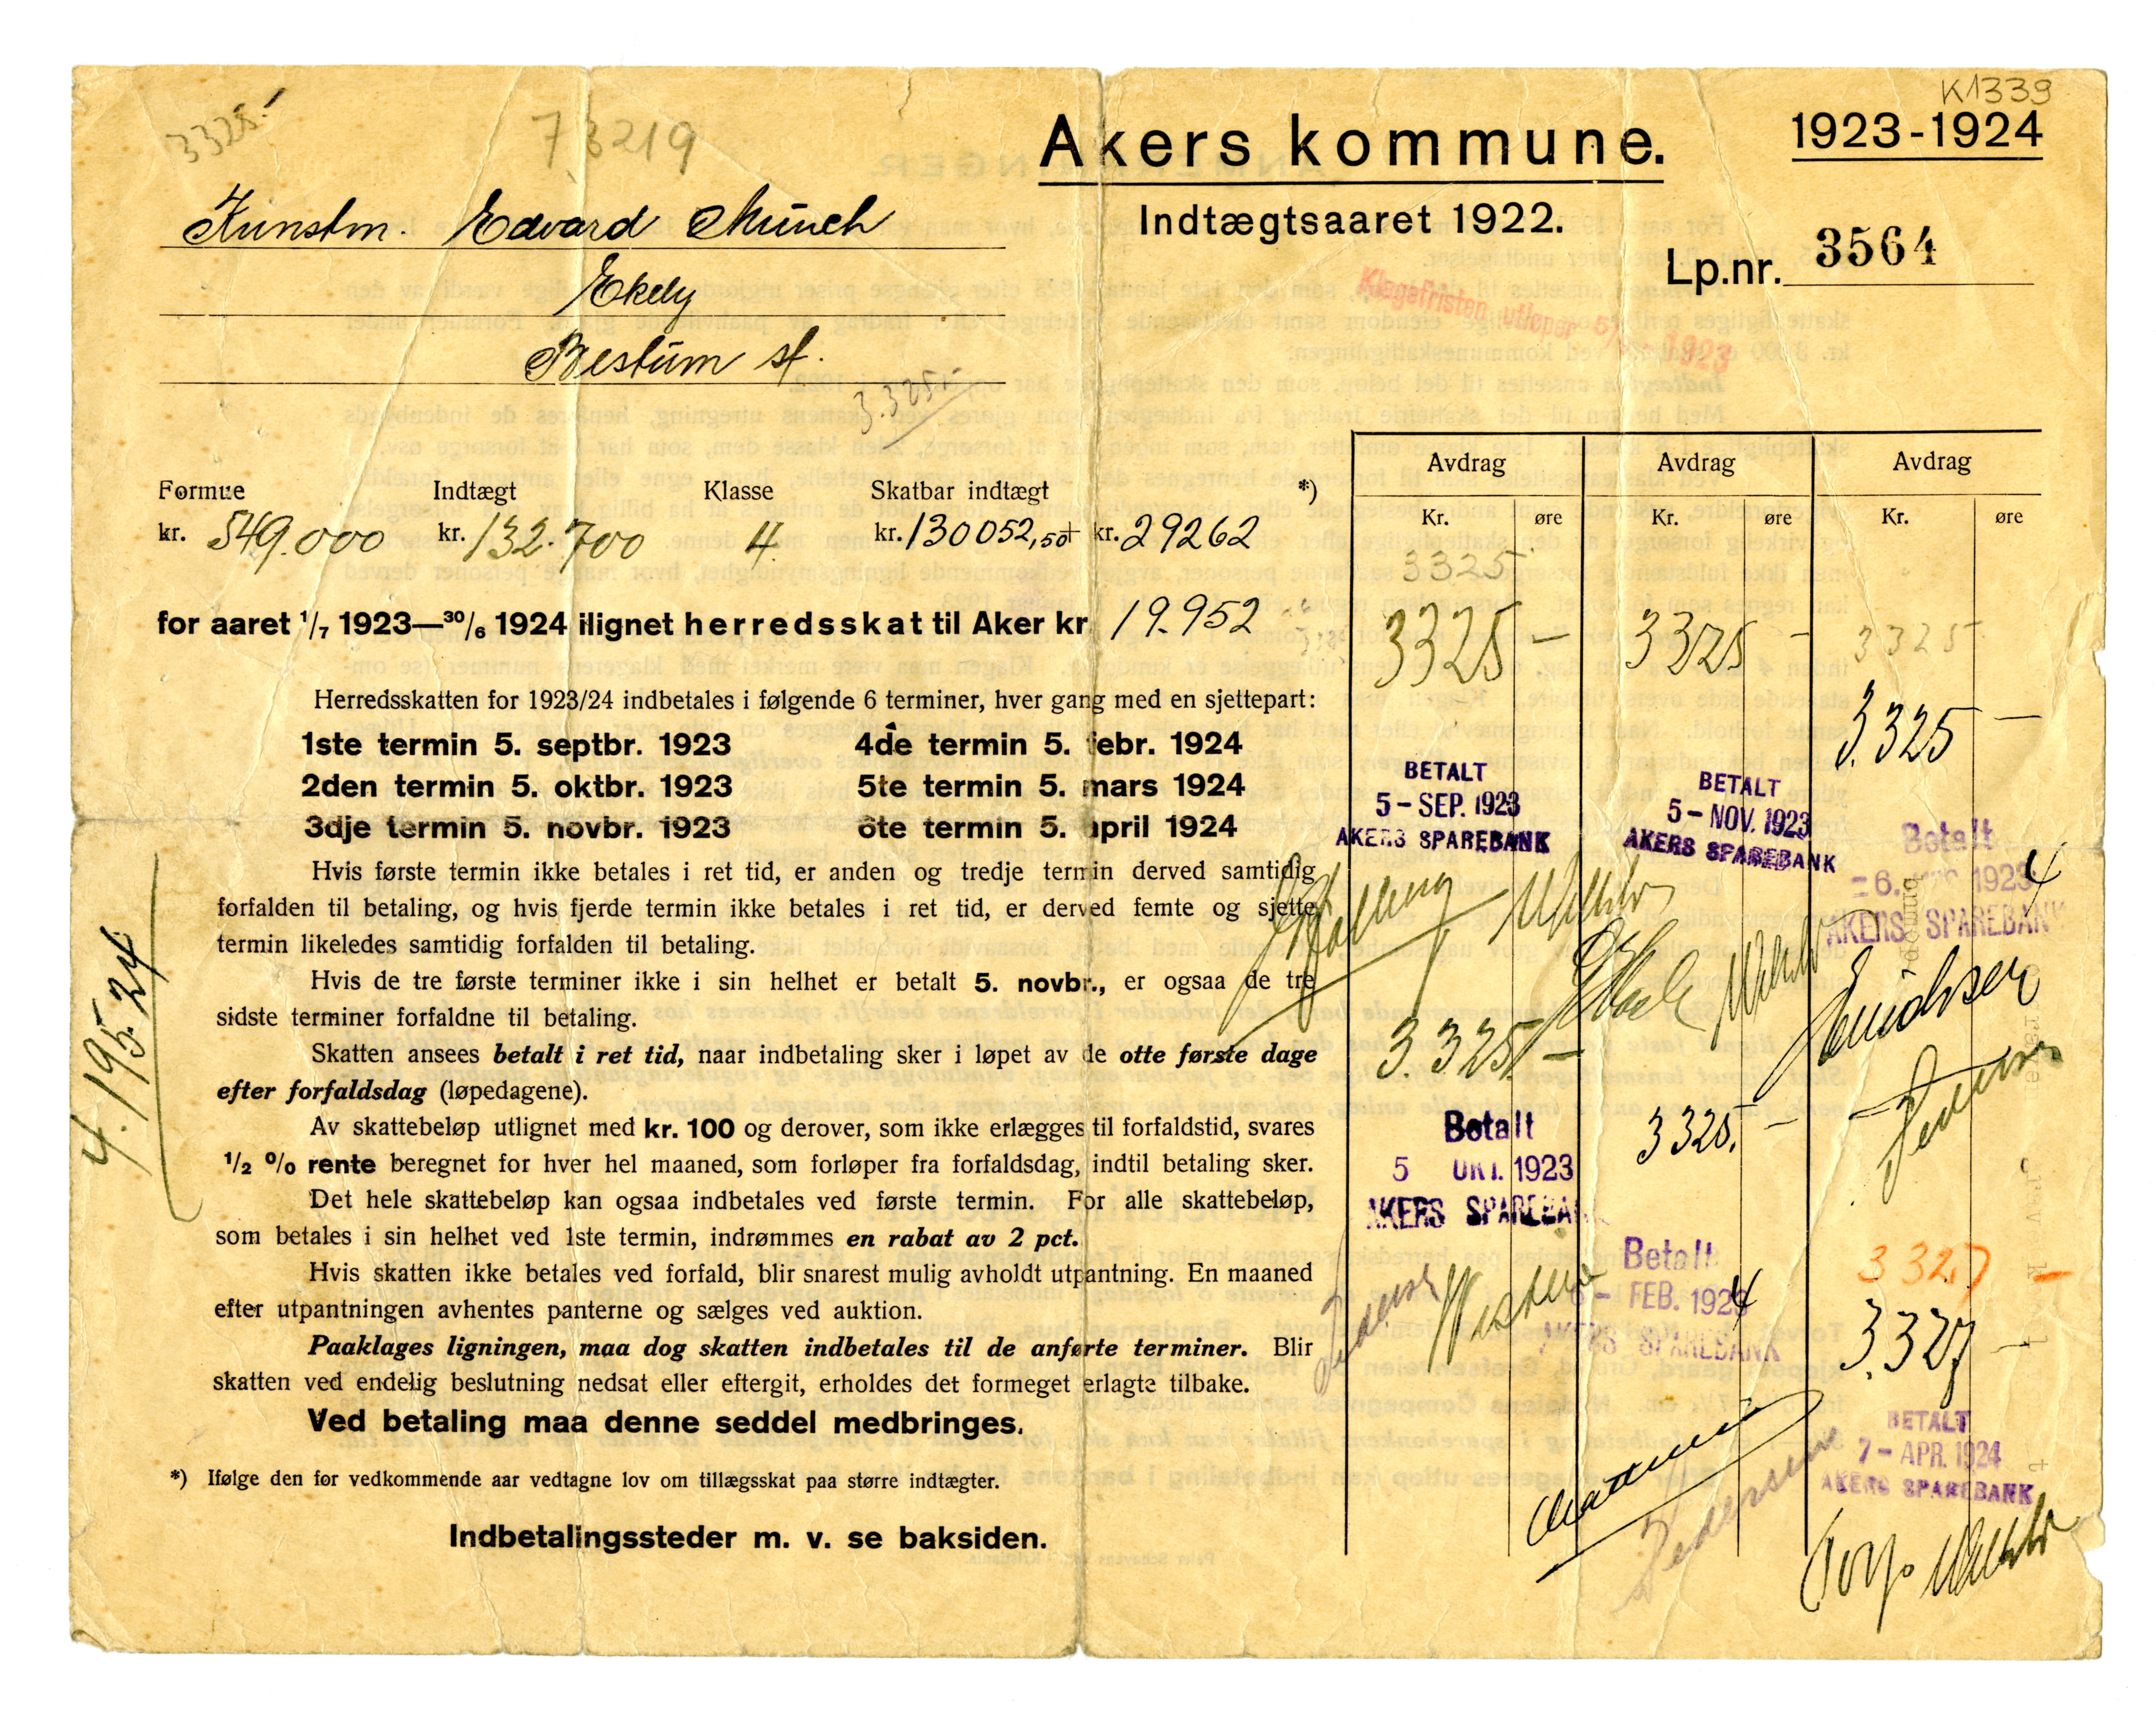 K1339
3325.-
7,3219
Akers kommune.
1923-1924
Kunstm. Edvard Munch
Indtægtsaaret 1922.
Lp.nr. 3564
Ekely
Klagefristen utløper 5/ 1923
Bestum st.
3.325.-
Formue Indtægt Klasse Skatbar indtægt *)
kr. 549.000 kr. 132.700 4 kr. 130052,50 + kr. 29262
for aaret 1/7 1923—30/6 1924 ilignet herredsskat til Aker kr. 19.952
Herredsskatten for 1923/24 indbetales i følgende 6 terminer, hver gang med en sjettepart:
1ste termin 5. septbr. 1923 4de termin 5. febr. 1924
2den termin 5. oktbr. 1923 5te termin 5. mars 1924
3dje termin 5. novbr. 1923 6te termin 5. april 1924
Hvis første termin ikke betales i ret tid, er anden og tredje termin derved samtidig
forfalden til betaling, og hvis fjerde termin ikke betales i ret tid, er derved femte og sjette
termin likeledes samtidig forfalden til betaling.
Hvis de tre første terminer ikke i sin helhet er betalt 5. novbr., er ogsaa de tre
sidste terminer forfaldne til betaling.
Skatten ansees betalt i ret tid, naar indbetaling sker i løpet av de otte første dage
efter forfaldsdag (løpedagene).
Av skattebeløp utlignet med kr. 100 og derover, som ikke erlægges til forfaldstid, svares
1/2 % rente beregnet for hver hel maaned, som forløper fra forfaldsdag, indtil betaling sker.
Det hele skattebeløp kan ogsaa indbetales ved første termin. For alle skattebeløp,
som betales i sin helhet ved 1ste termin, indrømmes en rabat av 2 pct.
Hvis skatten ikke betales ved forfald, blir snarest mulig avholdt utpantning. En maaned
efter utpantningen avhentes panterne og sælges ved auktion.
Paaklages ligningen, maa dog skatten indbetales til de anførte terminer. Blir
skatten ved endelig beslutning nedsat eller eftergit, erholdes det formeget erlagte tilbake.
Ved betaling maa denne seddel medbringes.
*) Ifølge den for vedkommende aar vedtagne lov om tillægsskat paa større indtægter.
Indbetalingssteder m. v. se baksiden.
4.195.24
Avdrag Avdrag Avdrag
Kr. øre Kr. øre Kr. øre
3325
3325 -
BETALT
5 - SEP. 1923
AKERS SPAREBANK
3.325 -
Betalt
5 OKT. 1923
AKERS SPAREBA
Pedersen
3325 -
BETALT
5 - NOV. 1923
AKERS SPAREBANK
3325. -
Betalt
- FEB. 1924
AKERS SPAREBANK
Pedersen
3325
3.325 -
Betalt
6. 1924
AKERS SPAREBANK
Pedersen
3327 -
3.327 -
BETALT
7 - APR. 1924
AKERS SPAREBANK